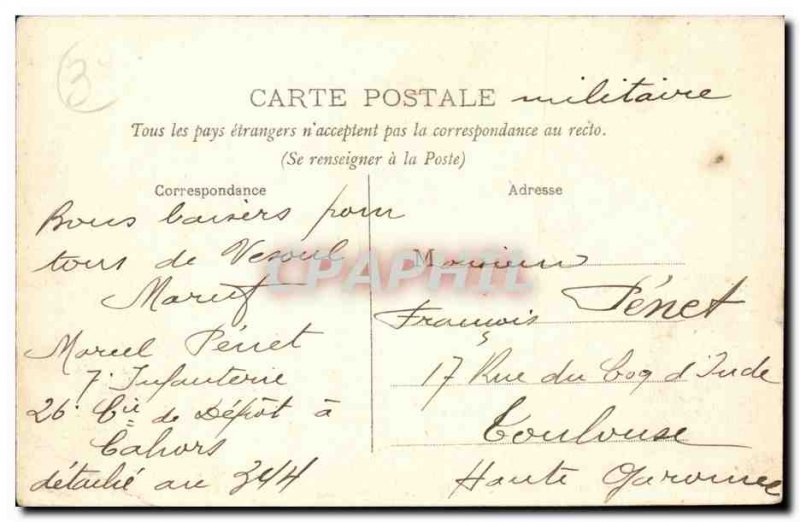 3
CARTE POSTALE militaire
Tous les pays étrangers n'acceptent pas la correspondance au recto.
(Se renseigner à la Poste)
Correspondance
Bons baisers pour
tous de Vesoul
Marcel Pénet
7e Infanterie
26e Cie de Dépôt à
Cahors
détaché au 344
Adresse
Monsieur
François Pénet
17 Rue du Coq d'Inde
Toulouse
Haute Garonne
CPAPHIL